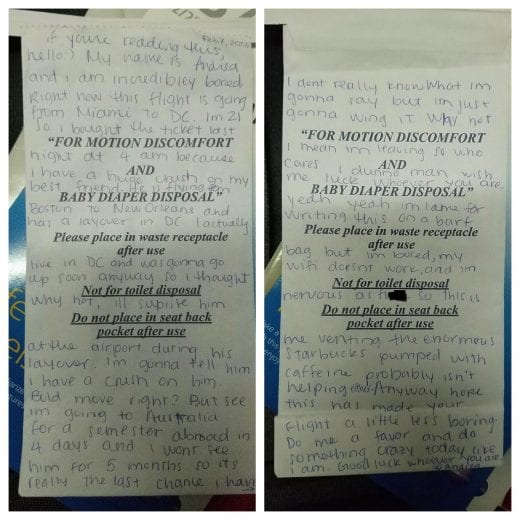 if you're reading this,
Feb 7, 2016
hello? My name is Andrea
and i am incredibley bored
Right now this flight is going
from Miami to DC. Im 21
so i bought the ticket last
"FOR MOTION DISCOMFORT
night at 4 am because
AND
i have a huge crush on my
best friend. He is flying from
BABY DIAPER DISPOSAL"
Boston to New Orleans and
has a layover in DC. I actually
Please place in waste receptacle
after use
live in DC and was gonna go
up soon anyway so i thought
Not for toilet disposal
why not, ill suprise him
Do not place in seat back
pocket after use
at the airport during his
layover. Im gonna tell him
i have a crush on him.
Bold move right? But see
im going to Australia
for a semester abroad in
4 days and I wont see
him for 5 months so its
really the last chance i have
I dont really know what im
gonna say but im just
gonna wing it. Why not
"FOR MOTION DISCOMFORT
I mean im leaving so who
AND
cares. I dunno man wish
me luck whoever you are.
BABY DIAPER DISPOSAL"
yeah yeah im lame for
writing this on a barf
Please place in waste receptacle
after use
bag but im bored, my
wifi doesnt work, and im
Not for toilet disposal
nervous as so this is
Do not place in seat back
pocket after use
me venting the enormous
Starbucks pumped with
caffeine probably isn't
helping either. Anyway hope
this has made your
flight a little less boring.
Do me a favor and do
something crazy today like
i am. Good luck whoever you are.
Andrea